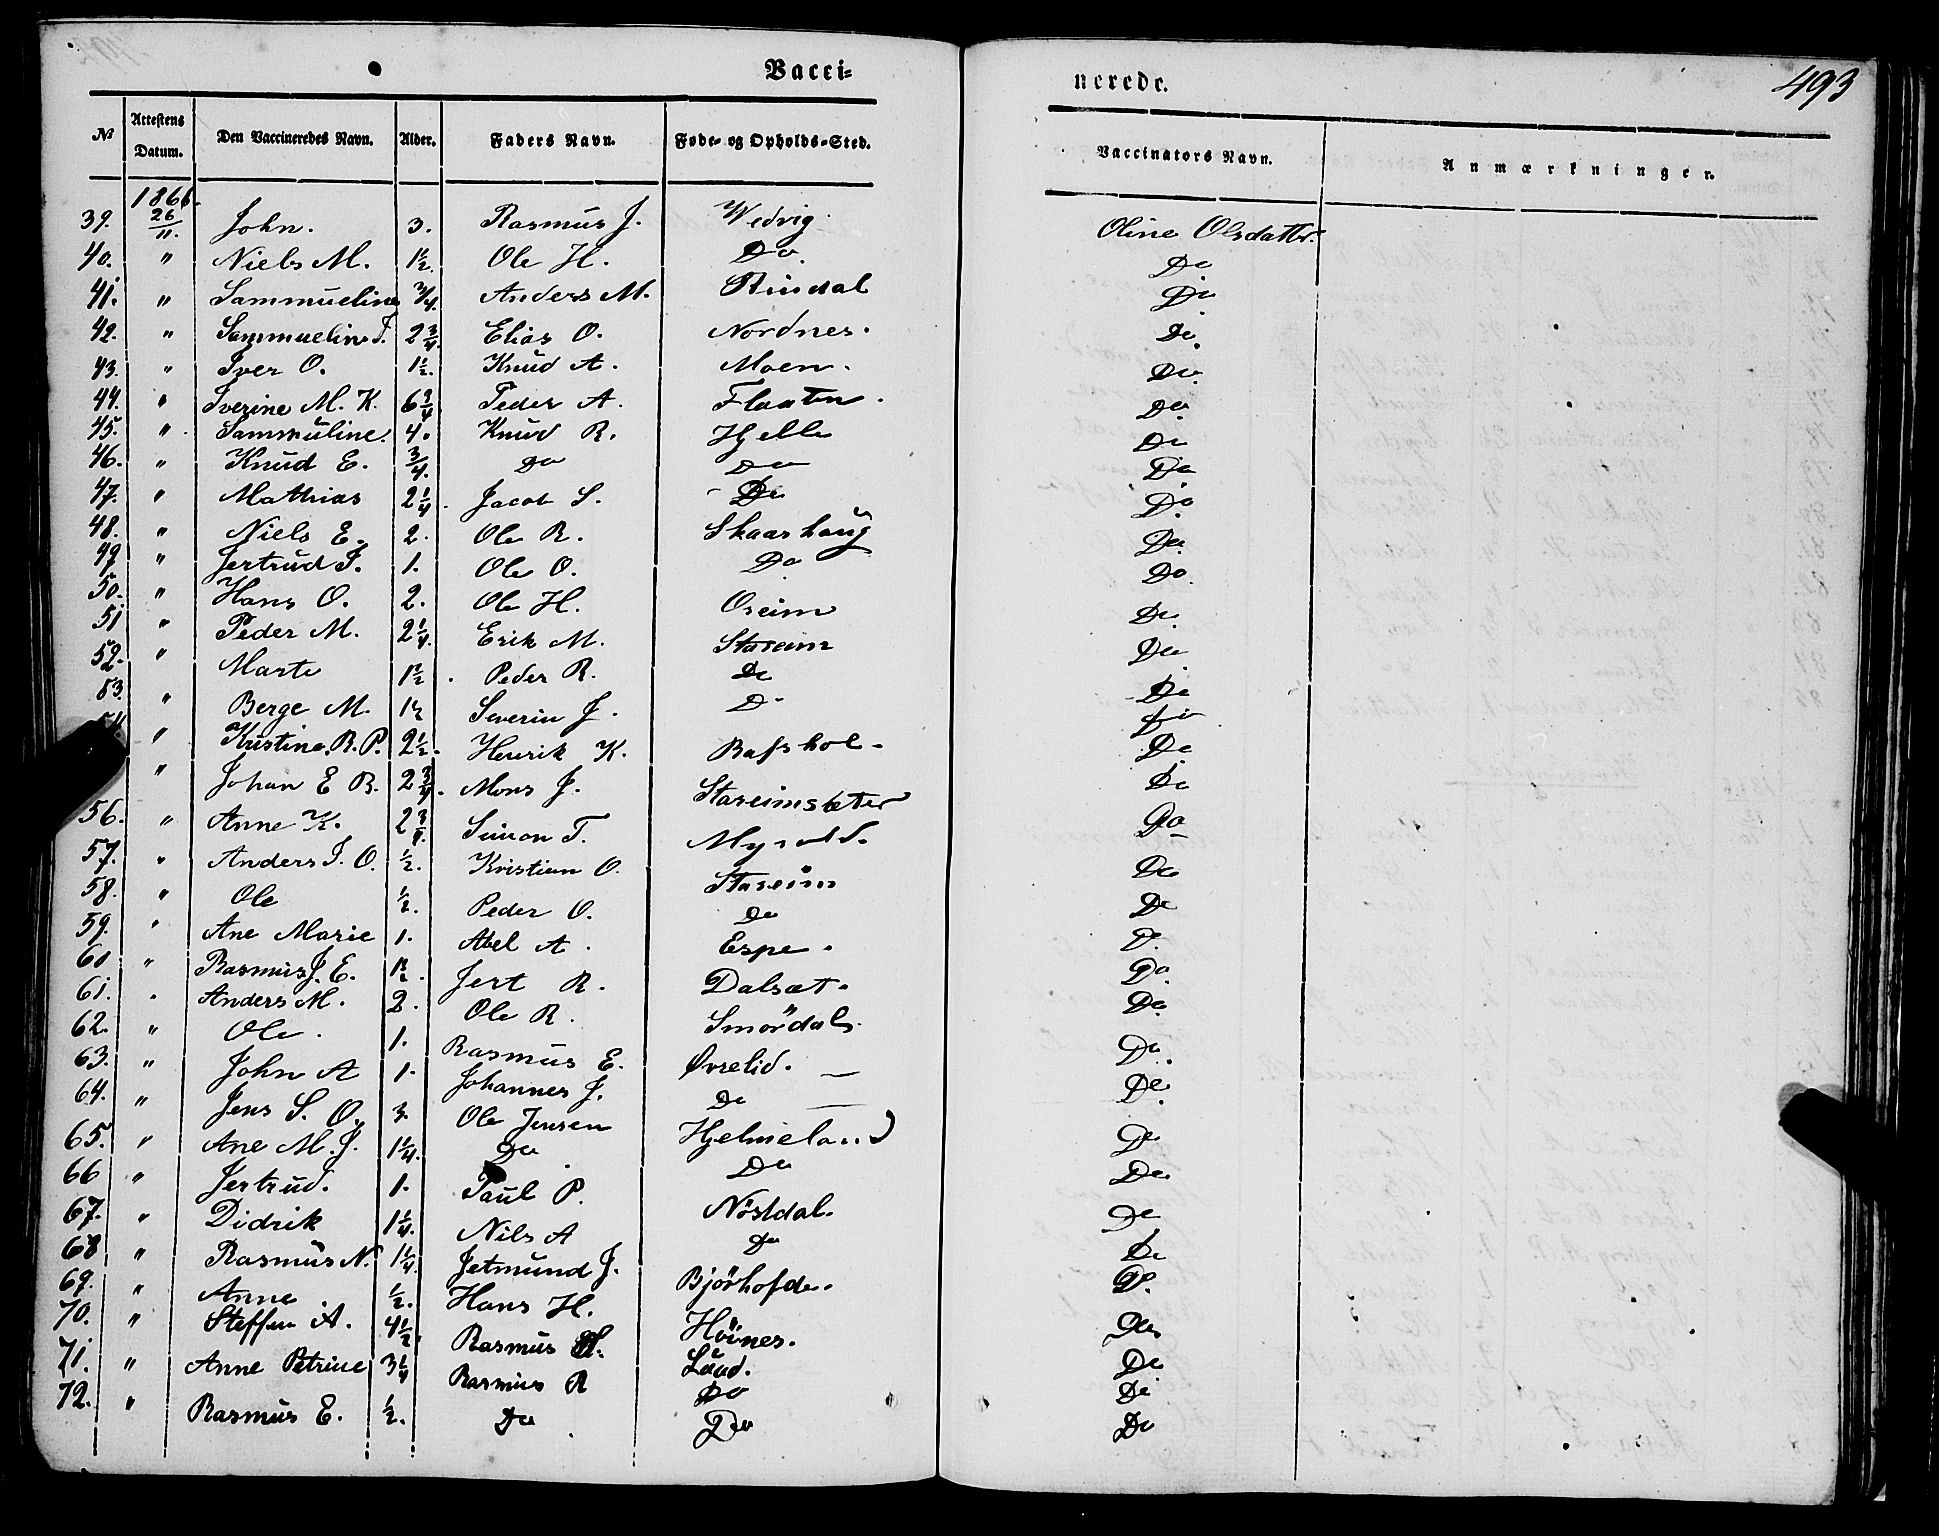 Vacci=
nerede.
493
№ Attestens Datum. Den Vaccineredes Navn. Alder. Faders Navn. Føde- og Opholds-Sted. Vaccinators Navn. Anmærkninger.
1866.
39. 26/11. John. 3. Rasmus J. Wedvig. Oline Olsdatter.
40. " Niels M. 1½. Ole H. Do. Do
41. " Sammueline ¾. Anders M. Rindal Do
42. " Sammueline J. 2¾. Elias O. Nordnes. Do.
43. " Iver O. 1½. Knud A. Moen. Do.
44. " Iverine M. K. 6¾ Peder A. Flaaten. Do.
45. " Sammuline. 4. Knud R. Hjelle Do
46. " Knud E. ¾. Do Do Do
47. " Mathias 2¼. Jacob S. Do Do.
48. " Niels E. 2. Ole R. Skaarhaug Do.
49 " Jertrud I. 1. Ole O. Do Do.
50. " Hans O. 2. Ole H. Oseim Do.
51 " Peder M. 2¼. Erik M. Stareim Do
52. " Marte 1½. Peder R. Do Do
53. " Berge M. 1½ Severin J. Do Do
54 " Kristine R. P. 2½. Henrik K. Do
" Johan E R. 2¾. Mons J. Stareimsæter Do
56. " Anne K. 2¾. Simon T. Do
57. " Anders I. O. ½. Kristian O. Stareim Do
58. " Ole ½. Peder O. Do Do
59. " Ane Marie 1. Abel A. Espe. D.
60 " Rasmus J. E. 1½. Jert R. Dalsæt. Do
61. " Anders M. 2. Ole R. Smørdal. Do
62. " Ole. 1. Rasmus E. Øvrelid. Do.
63. " John A 1. Johannes J. Do Do.
64. " Jens S. O. 3. Ole Jensen Hjelmeland Do
65. " Ane M. J. 1¼. Do Do Do
66 " Jertrud. 1. Paul P. Nøstdal. Do
67. " Didrik 1¼. Nils A Do Do
68 " Rasmus N. 1¼. Jetmund J. Bjørhofde. Do.
69. " Anne ½. Hans H. Høines. Do
70. " Steffen A. 4½. Rasmus Do
71. " Anne Petrine 3¼ Rasmus R Do Do
72. " Rasmus E. ½. Do Do Do